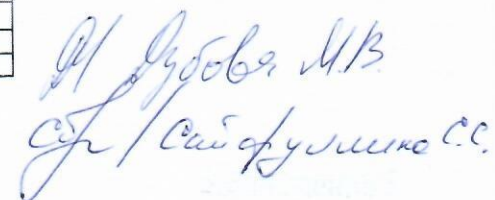 Дубовая М.В.
/ Сайфуллина С.С.